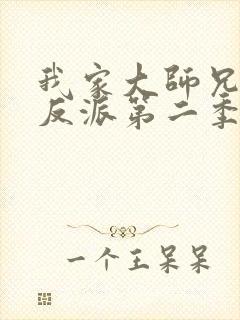 我家大師兄
反派第二季
一个王呆呆